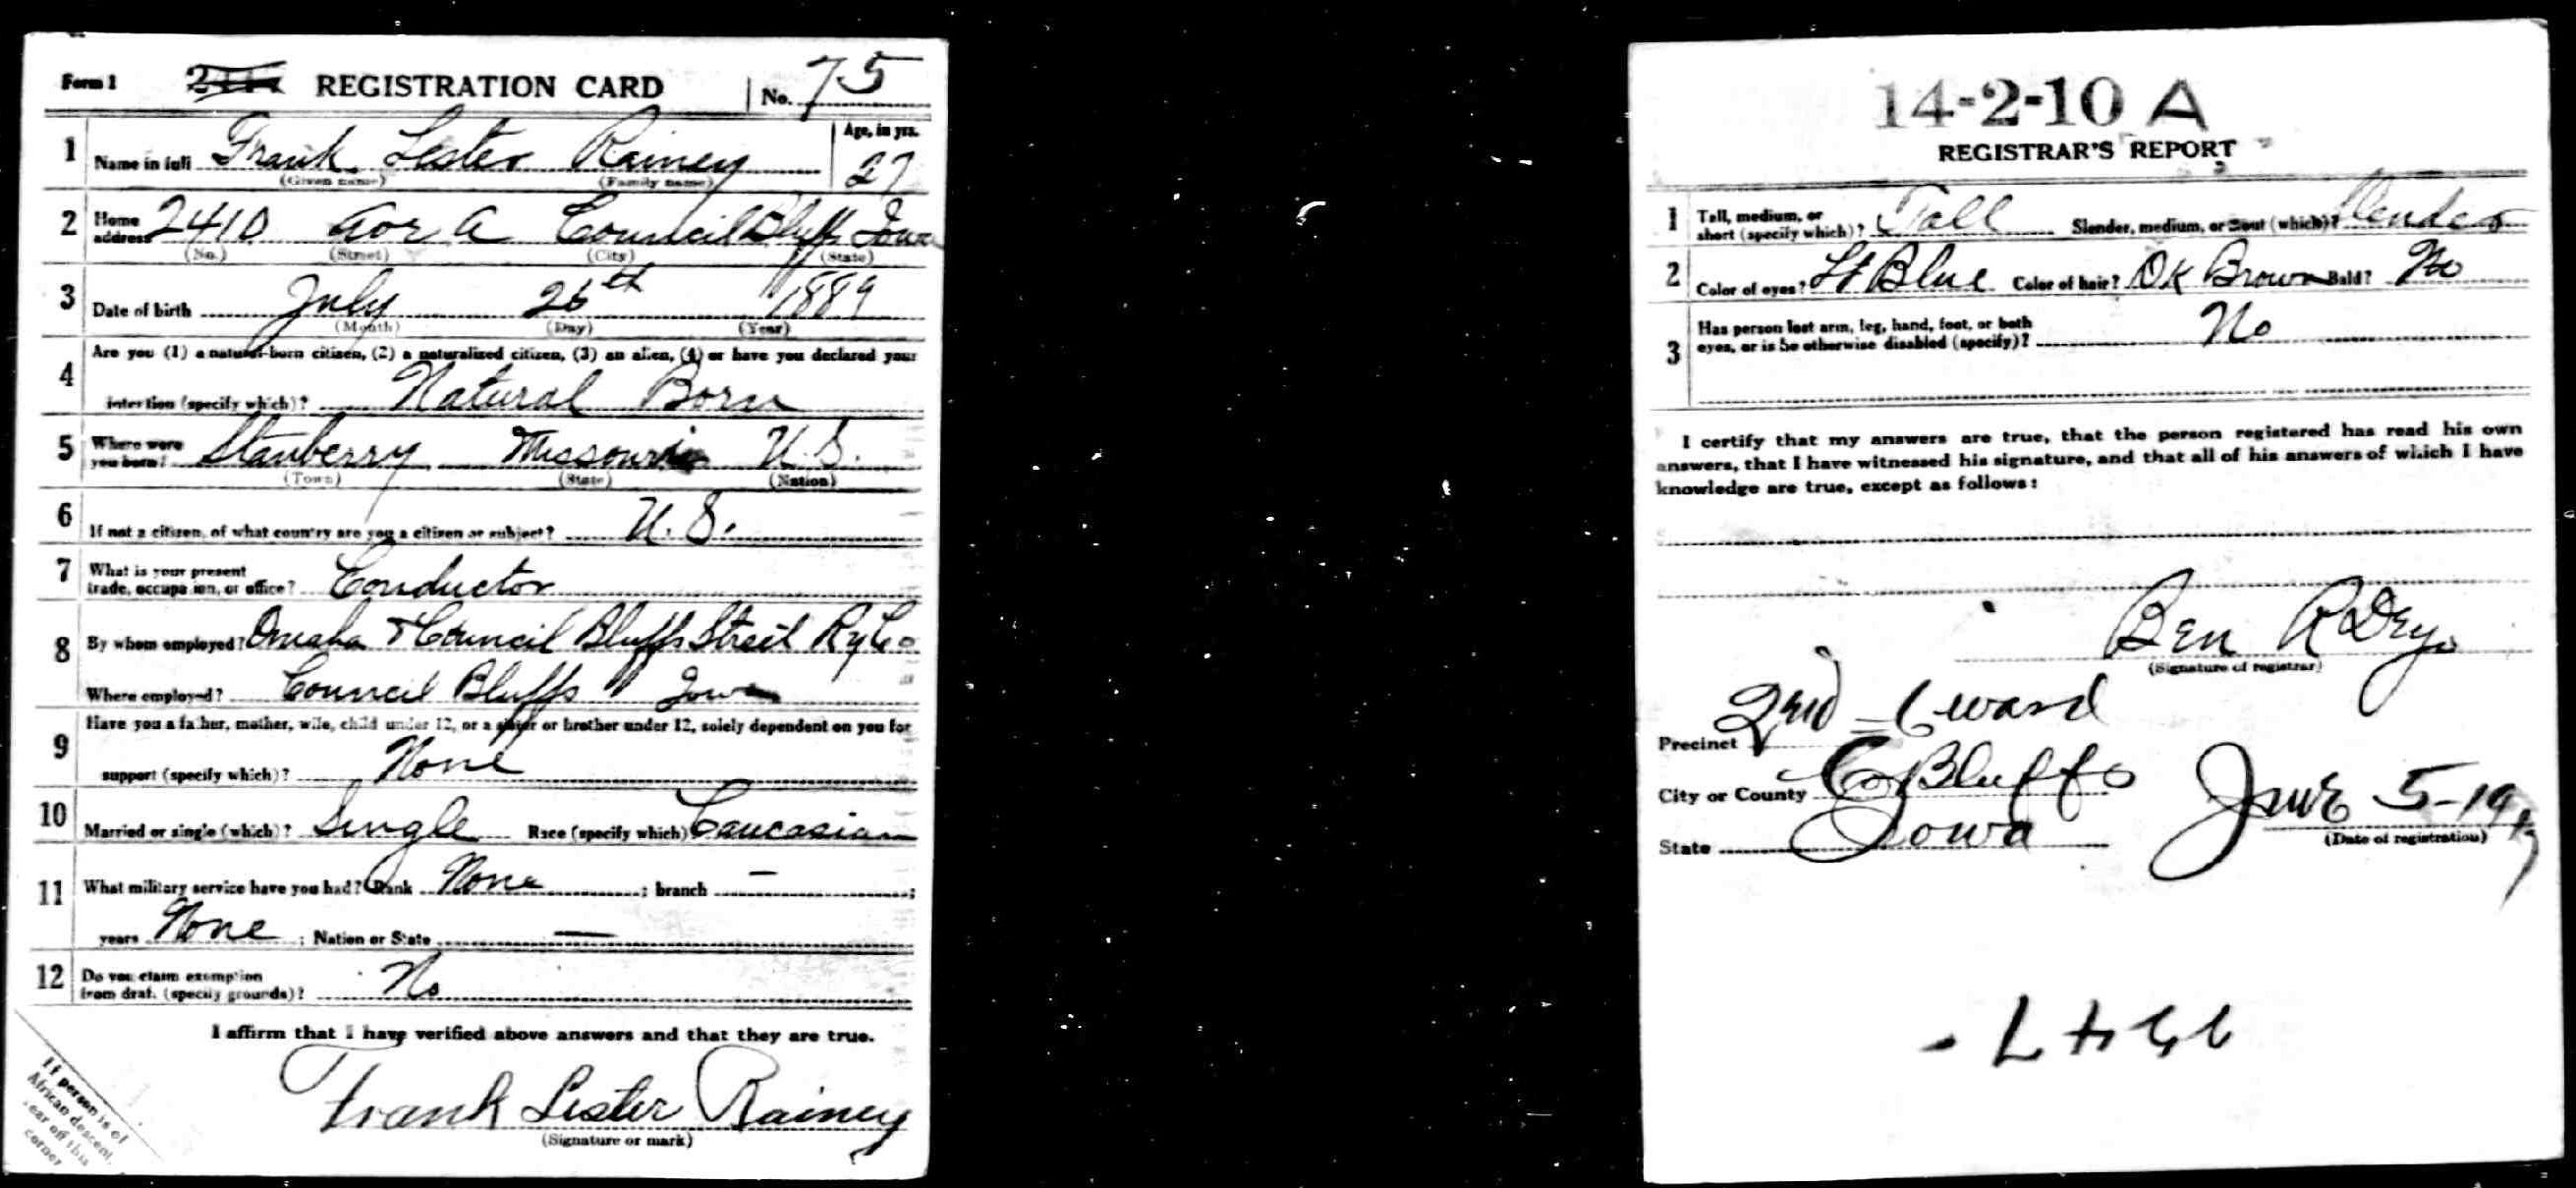 Form 1 REGISTRATION CARD No. 75
1 Name in full Frank Lester Rainey Age, in yrs.
(Given name) (Family name) 27
2 Home address 2410 Ave A Council Bluffs Iowa
(No.) (Street) (City) (State)
3 Date of birth July 26th 1889
(Month) (Day) (Year)
4 Are you (1) a natural-born citizen, (2) a naturalized citizen, (3) an alien, (4) or have you declared your
intention (specify which)? Natural Born
5 Where were you born? Stanberry Missouri U.S.
(Town) (State) (Nation)
6 If not a citizen, of what country are you a citizen or subject? U.S.
7 What is your present
trade, occupation, or office? Conductor
8 By whom employed? Omaha & Council Bluffs Street Ry Co
Where employed? Council Bluffs Iowa
9 Have you a father, mother, wife, child under 12, or a sister or brother under 12, solely dependent on you for
support (specify which)? None
10 Married or single (which)? Single Race (specify which) Caucasian
11 What military service have you had? Rank None ; branch — ;
years None ; Nation or State —
12 Do you claim exemption
from draft (specify grounds)? No
I affirm that I have verified above answers and that they are true.
Frank Lester Rainey
(Signature or mark)
If person is of
African descent,
tear off this
corner
14-2-10 A
REGISTRAR'S REPORT
1 Tall, medium, or
short (specify which)? Tall Slender, medium, or stout (which)? Slender
2 Color of eyes? Lt Blue Color of hair? Dk Brown Bald? No
3 Has person lost arm, leg, hand, foot, or both
eyes, or is he otherwise disabled (specify)? No
I certify that my answers are true, that the person registered has read his own
answers, that I have witnessed his signature, and that all of his answers of which I have
knowledge are true, except as follows:
Ben R Deyo
(Signature of registrar)
Precinct 2nd - 6 ward
City or County Co Bluffs
State Iowa
June 5-1917
(Date of registration)